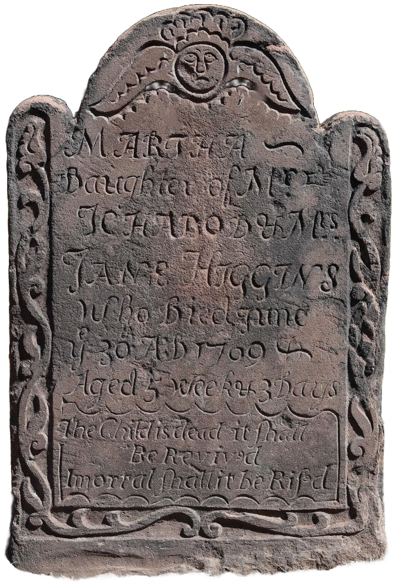 MARTHA
Daughter of Mr
ICHABOD & Mrs
JANE HIGGINS
Who Died June
ye 30 AD 1769
Aged 5 weeks & 3 Days
The Child is dead it shall
Be Revived
Imortal shall it be Ris'd